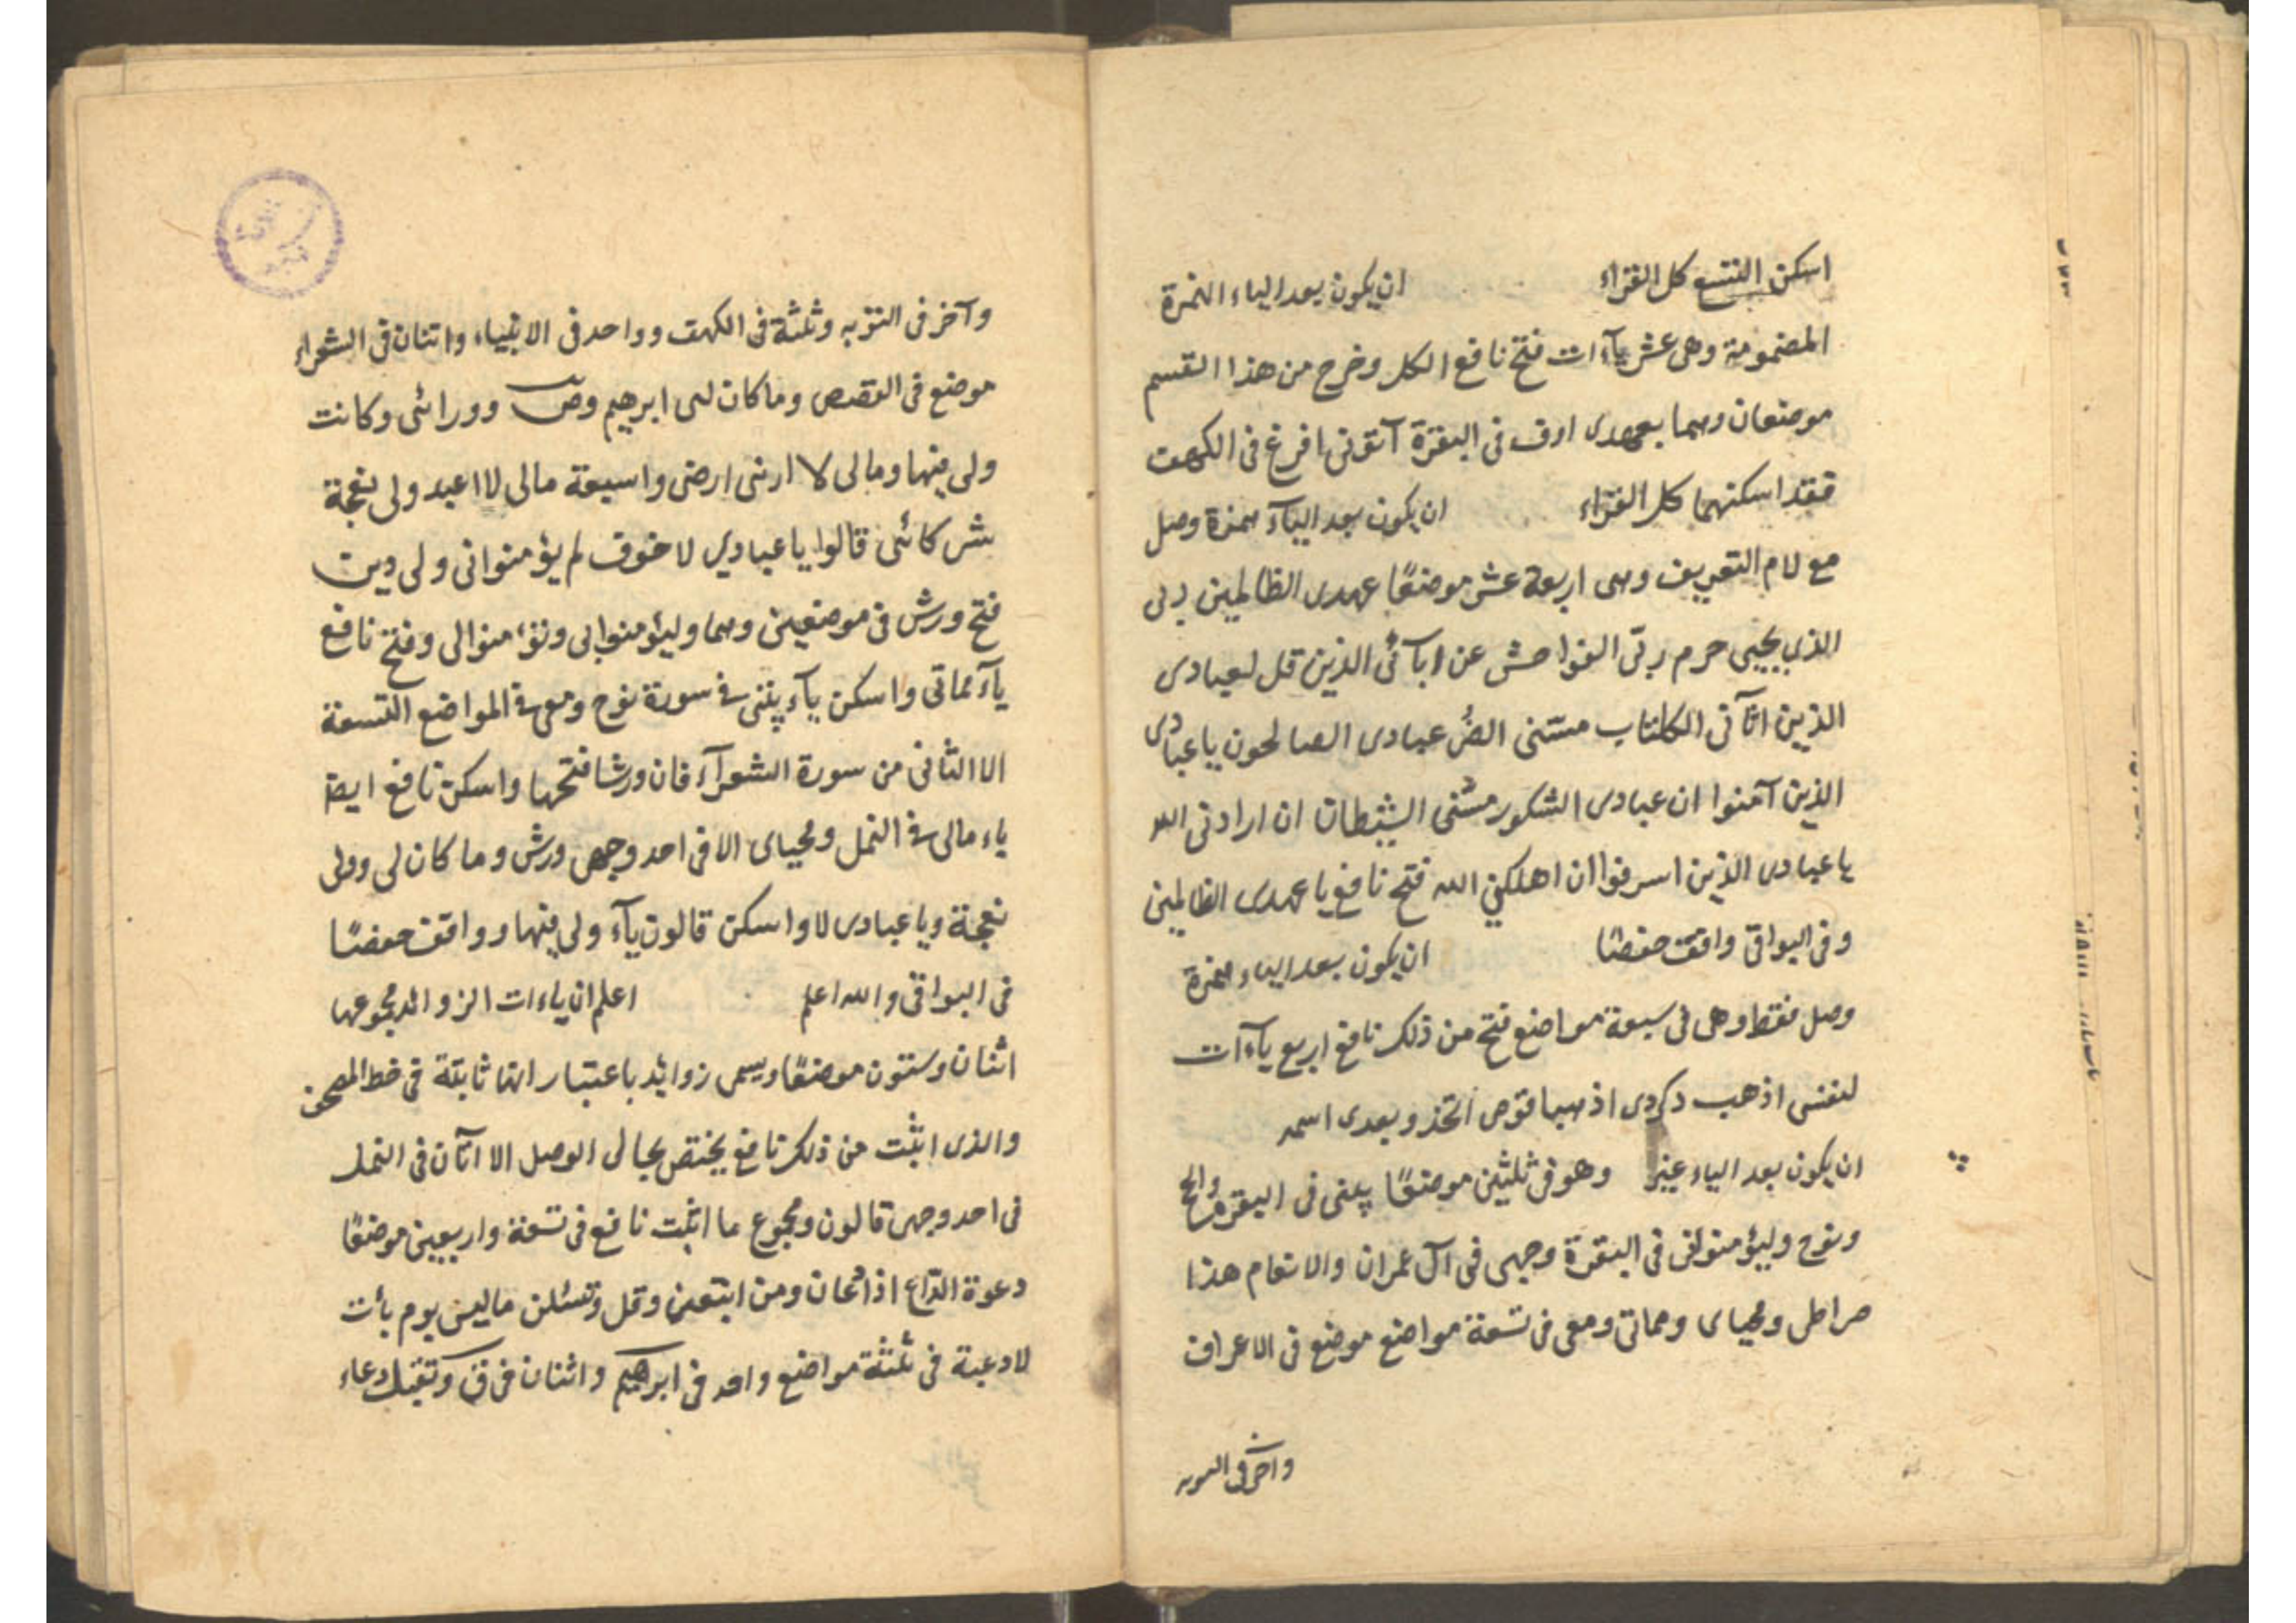 اسكن التسع كل القراء ان يكون بعد الياء الهمزة
المضمومة وهى عشر ياآت فتح نافع الكل وخرج من هذا القسم
موضعان وهما بعهدى اوف فى البقرة آتونى افرغ فى الكهف
فقد اسكنهما كل القراء ان يكون بعد اليآء همزة وصل
مع لام التعريف وهى اربعة عشر موضعًا عهدى الظالمين ربى
الذي يحيى حرم ربّى الفواحش عن ابآئى الذين قل لعبادى
الذين اتآنى الكتاب مسّنى الضُر عبادى الصالحون يا عبادى
الذين آمنوا ان عبادى الشكور مسّنى الشيطان ان ارادنى الله
يا عبادى الذين اسرفوا ان اهلكني الله فتح نافع يا عهدى الظالمين
وفى البواقى وافقت حفصًا ان يكون بعد الياء همزة
وصل فقط وهى فى سبعة مواضع فتح من ذلك نافع اربع ياآت
لنفسى اذهب ذكرى اذهبا قومى اتخذو بعدى اسمه
ان يكون بعد الياء غير وهو فى ثلثين موضعًا بيتى فى البقرة والحج
ونوح وليؤمنوا بى فى البقرة وجهى فى آل عمران والانعام هذا
صراطى ومحياى ومماتى ومعى فى تسعة مواضع موضع فى الاعراف
وآخر فى التوبه
وآخر فى التوبه وثلثة فى الكهف وواحد فى الانبياء واثنان فى الشعراء
موضع فى القصص وما كان لى ابرهيم وص وورائى وكانت
ولى فيها ومالى لا ارى ارضى واسعة مالى لا اعبد ولى نعجة
شركائى قالوا يا عبادي لا خوف لم يؤمنوا لى ولى دين
فتح ورش فى موضعين وهما وليؤمنوا بى وتؤمنوا لى وفتح نافع
يآء مماتى واسكن يآء بيتى فى سورة نوح ومعى فى المواضع التسعة
الا الثانى من سورة الشعرآء فان ورشا فتحها واسكن نافع ايضا
ياء مالى فى النمل ومحياى الا فى احد وجهى ورش وما كان لى وولى
نعجة ويا عبادى لا واسكن قالون يآء ولى فيها ووافقت حفصًا
فى البواقى والله اعلم اعلم ان ياءات الزوائد مجموعها
اثنان وستون موضعًا ويسمى زوائد باعتبار انها ثابتة فى خط المصحف
والذى اثبت من ذلك نافع يختص بحالى الوصل الا اتآن فى النمل
فى احد وجهى قالون ومجموع ما اثبت نافع فى تسعة واربعين موضعًا
دعوة الدّاع اذا دعان ومن اتبعن وقل وتسئلن ما ليس يوم يأت
لا دعية فى ثلثة مواضع واحد فى ابرهيم واثنان فى ق وتقبل دعاء